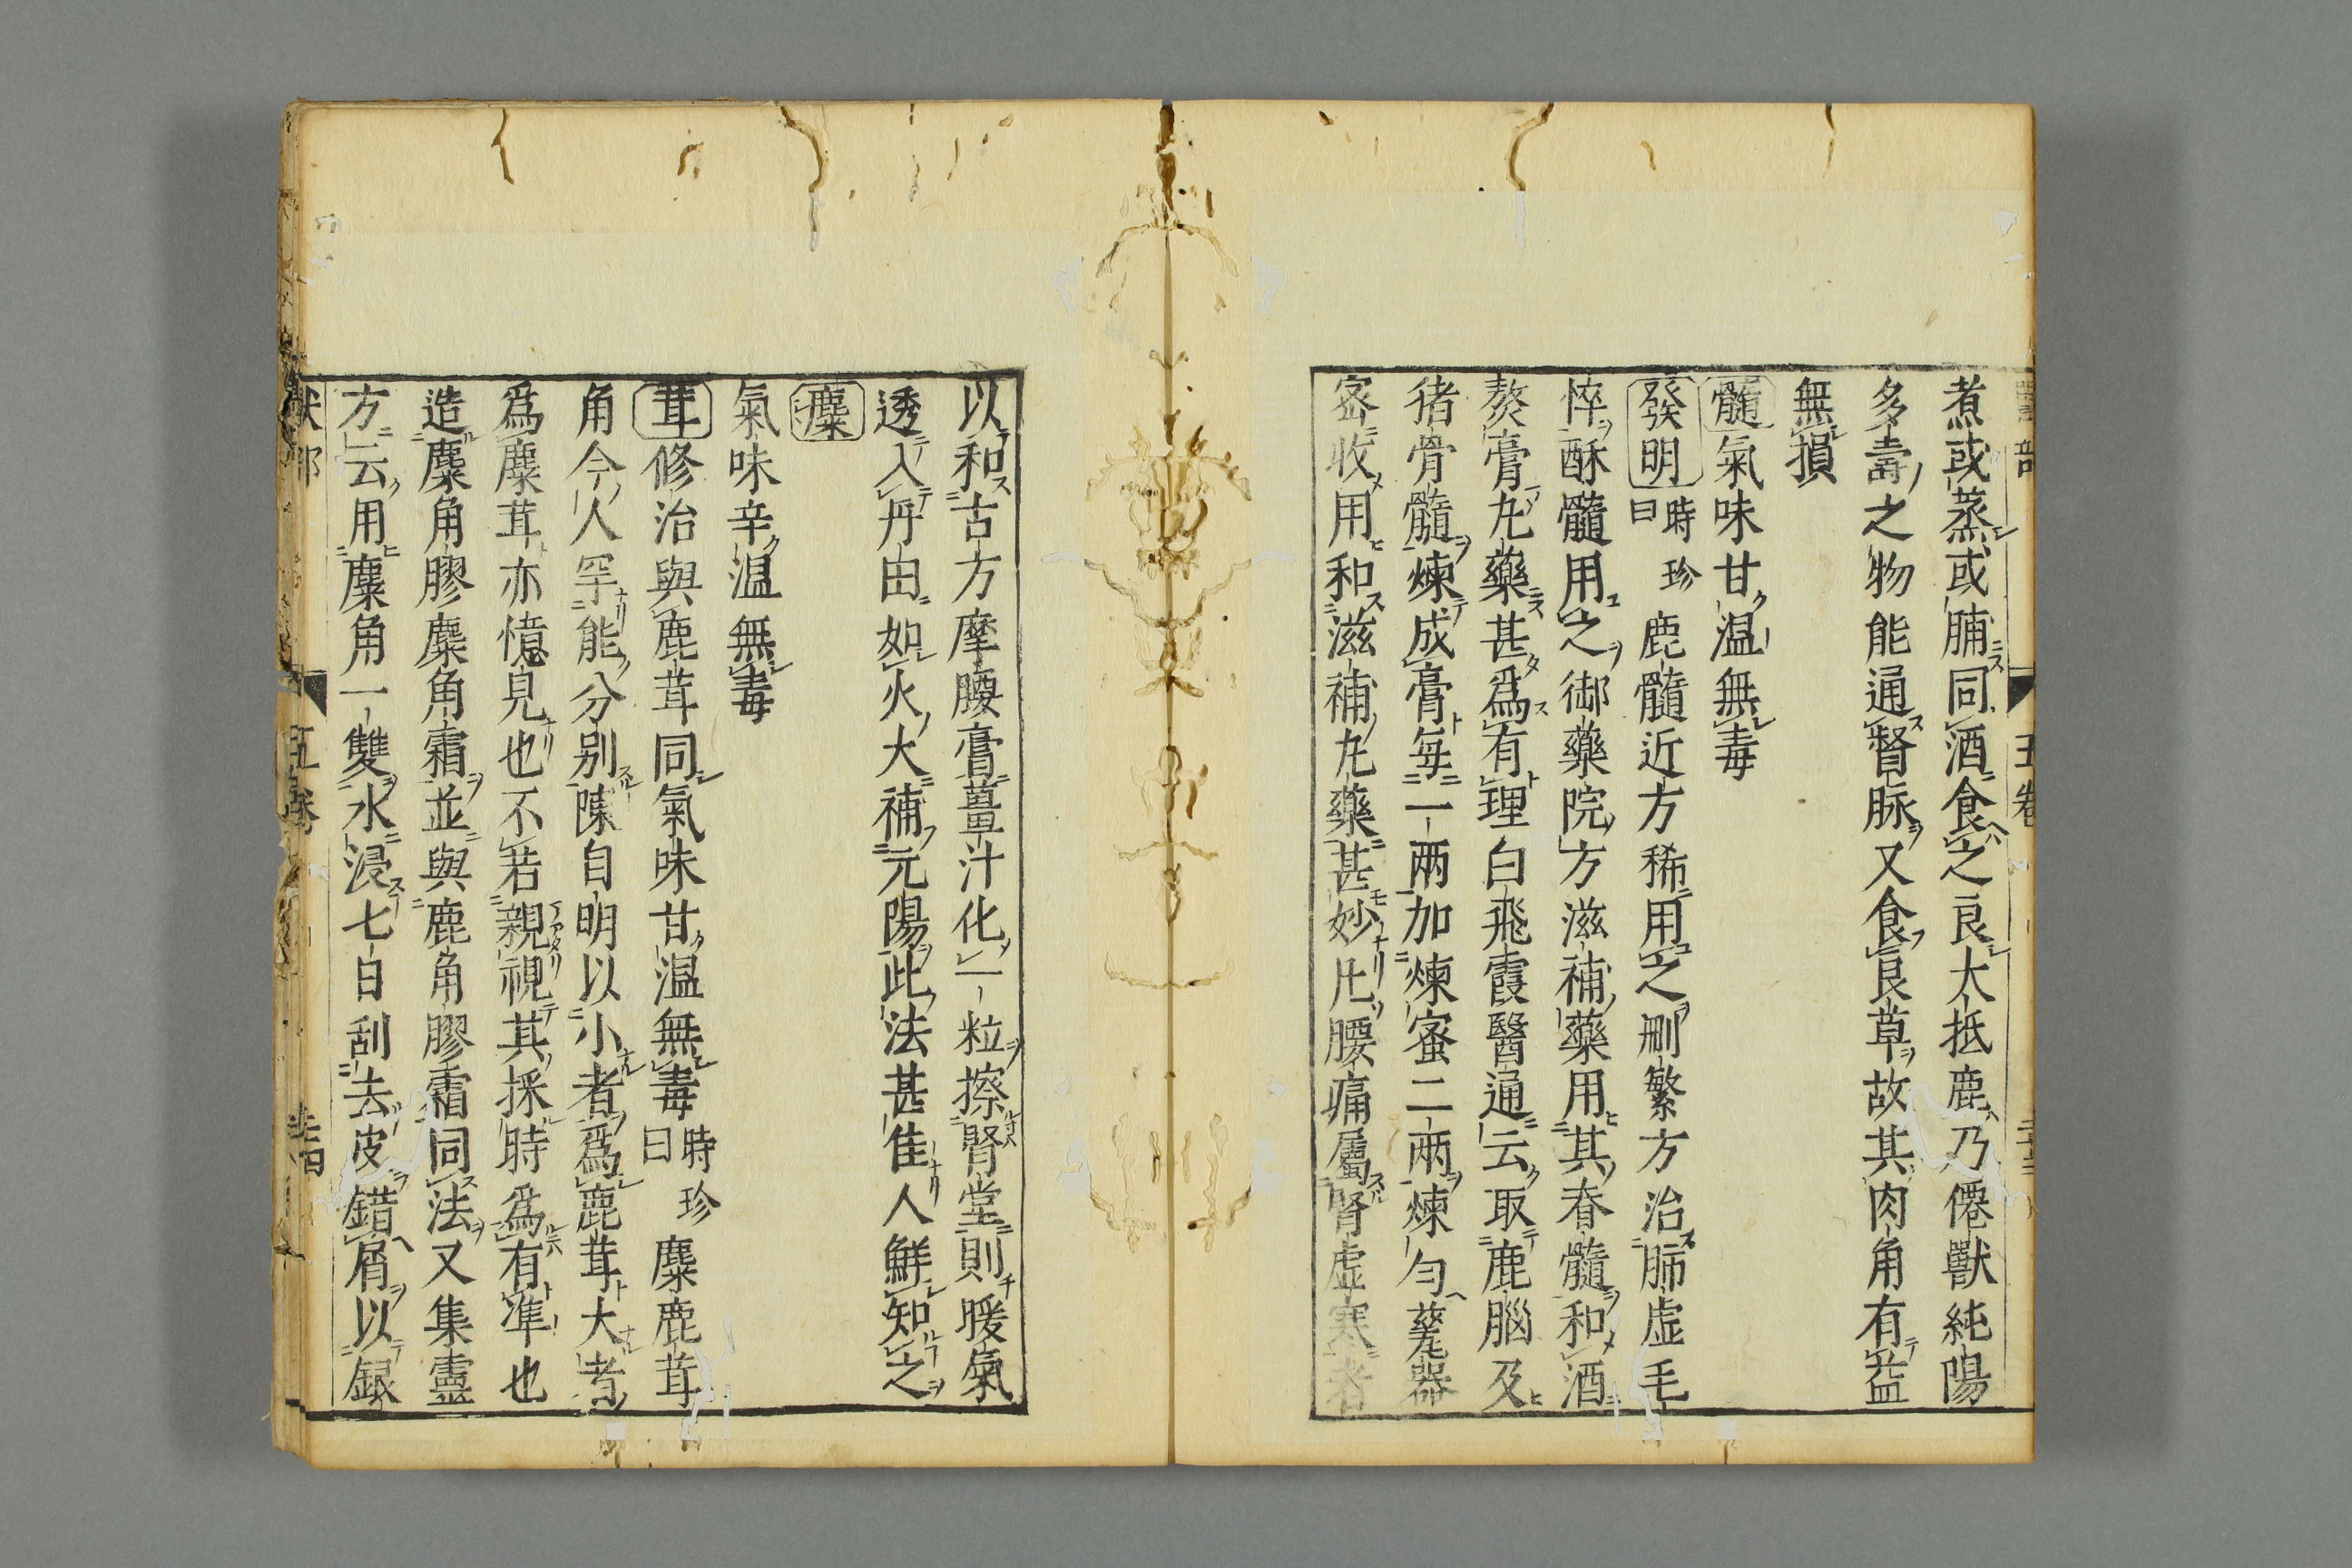 煮或蒸或脯同酒食之良大抵鹿乃僊獸純陽
多壽之物能通督脉又食良草故其肉角有益
無損
髓氣味甘温無毒
發明時珍曰鹿髓近方稀用之刪繁方治肺虚毛
悴酥髓用之御藥院方滋補藥用其脊髓和酒
熬膏丸藥甚爲有理白飛霞醫通云取鹿腦及
猪骨髓煉成膏毎一兩加煉蜜二兩煉匀甆器
宻收用和滋補丸藥甚妙凡腰痛屬腎虚寒者
以和古方摩腰膏薑汁化一粒擦腎堂則暖氣
透入丹田如火大補元陽此法甚隹人鮮知之
麋
氣味辛温無毒
茸修治與鹿茸同氣味甘温無毒時珍曰麋鹿茸
角今人罕能分别陳自明以小者爲鹿茸大者
爲麋茸亦憶見也不若親視其採時爲有凖也
造麋角膠麋角霜並與鹿角膠霜同法又集靈
方云用麋角一雙水浸七日刮去皮錯屑以銀
獸部 五卷